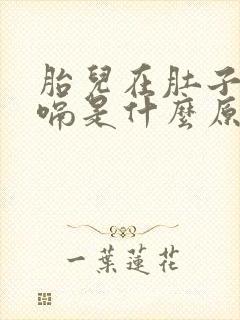 胎兒在肚子
嗝是什麼原
一葉蓮花